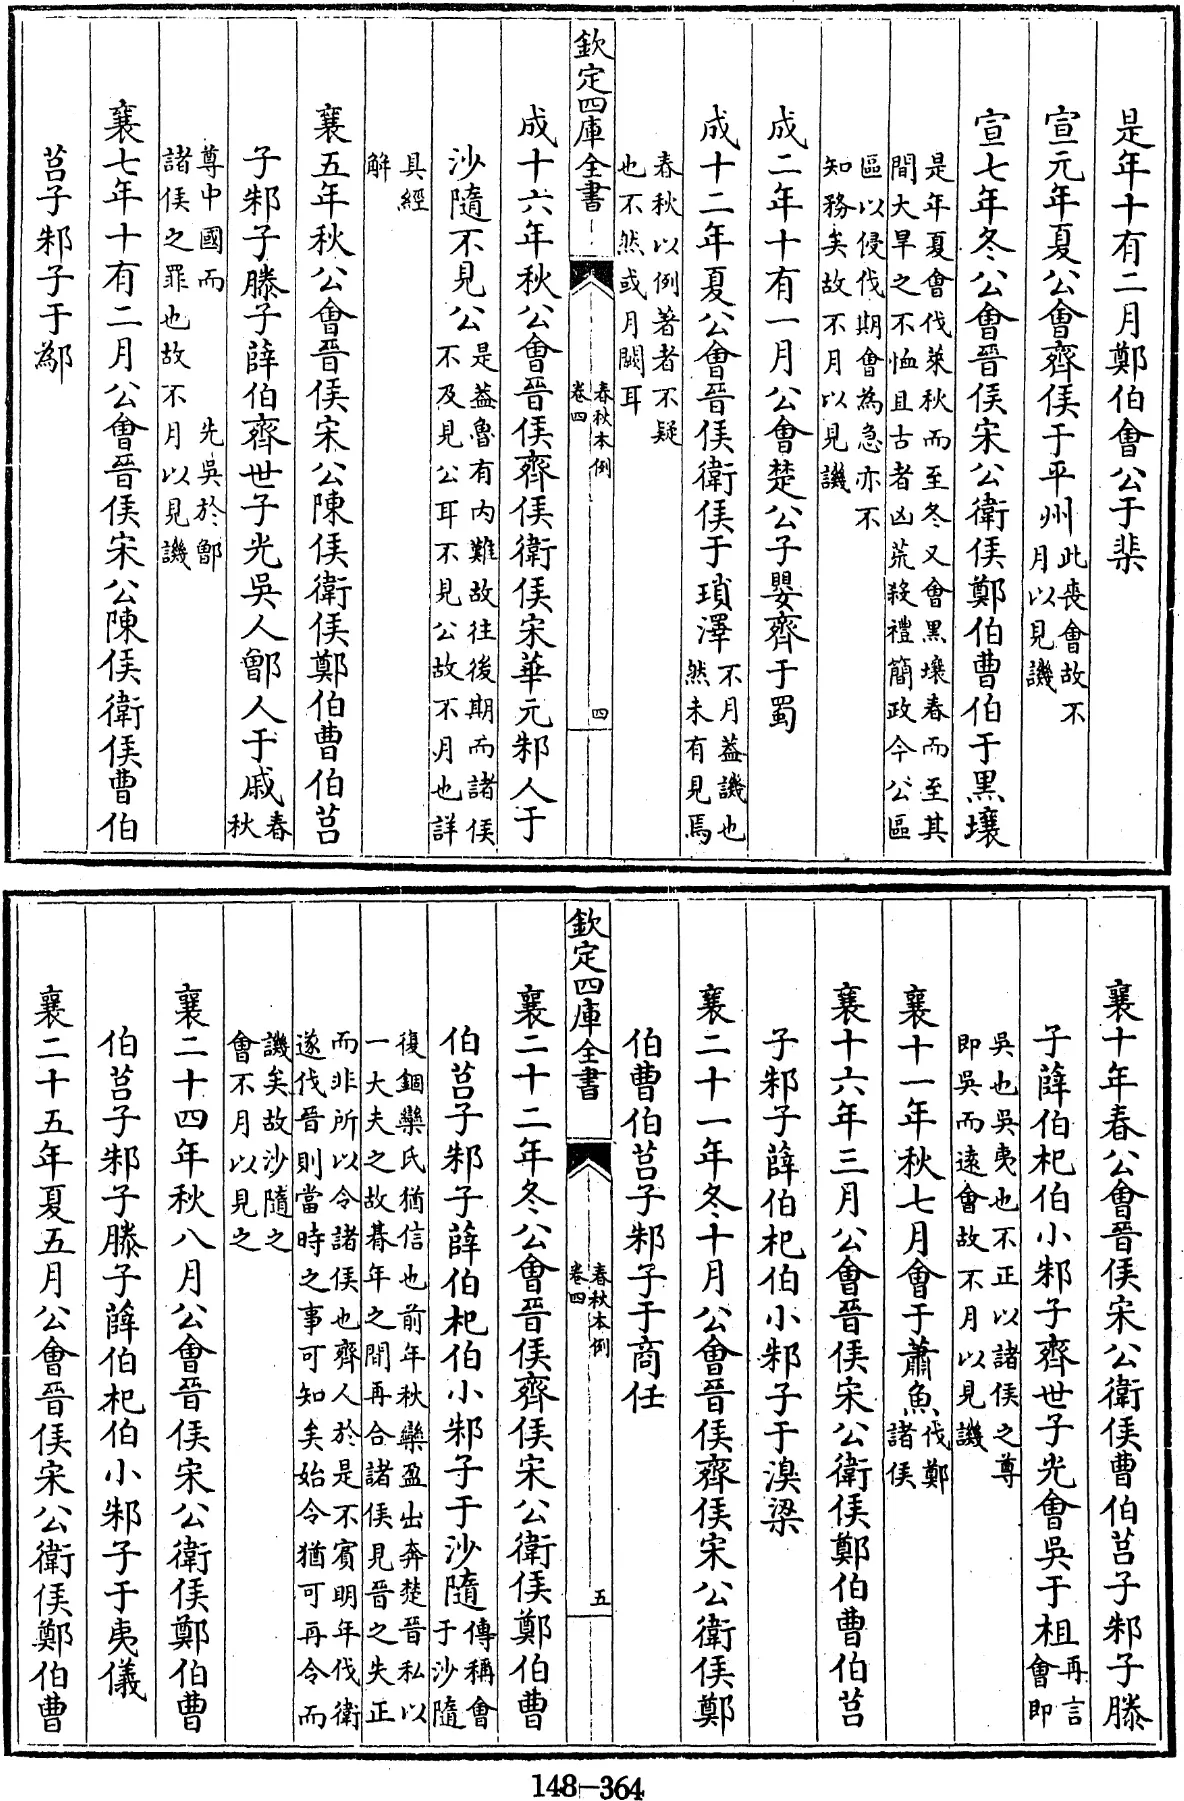 是年十有二月鄭伯會公于棐
宣元年夏公會齊侯于平州此喪會故不
月以見譏
宣七年冬公會晉侯宋公衛侯鄭伯曹伯于黑壤
是年夏會伐萊秋而至冬又會黑壤春而至其
間大旱之不恤且古者凶荒殺禮簡政今公區
區以侵伐期會為急亦不
知務矣故不月以見譏
成二年十有一月公會楚公子嬰齊于蜀
成十二年夏公會晉侯衛侯于瑣澤不月蓋譏也
然未有見焉
春秋以例著者不疑
也不然或月闕耳
欽定四庫全書
春秋本例
卷四
四
成十六年秋公會晉侯齊侯衛侯宋華元邾人于
沙隨不見公是蓋魯有內難故往後期而諸侯
不及見公耳不見公故不月也詳
具經
解
襄五年秋公會晉侯宋公陳侯衛侯鄭伯曹伯莒
子邾子滕子薛伯齊世子光吳人鄫人于戚春
秋
尊中國而 先吳於鄫
諸侯之罪也故不月以見譏
襄七年十有二月公會晉侯宋公陳侯衛侯曹伯
莒子邾子于鄬
襄十年春公會晉侯宋公衛侯曹伯莒子邾子滕
子薛伯杞伯小邾子齊世子光會吳于柤再言
會即
吳也吳夷也不正以諸侯之尊
即吳而遠會故不月以見譏
襄十一年秋七月會于蕭魚伐鄭
諸侯
襄十六年三月公會晉侯宋公衛侯鄭伯曹伯莒
子邾子薛伯杞伯小邾子于溴梁
襄二十一年冬十月公會晉侯齊侯宋公衛侯鄭
伯曹伯莒子邾子于商任
欽定四庫全書
春秋本例
卷四
五
襄二十二年冬公會晉侯齊侯宋公衛侯鄭伯曹
伯莒子邾子薛伯杞伯小邾子于沙隨傳稱會
于沙隨
復錮欒氏猶信也前年秋欒盈出奔楚晉私以
一大夫之故朞年之間再合諸侯見晉之失正
而非所以令諸侯也齊人於是不賓明年伐衛
遂伐晉則當時之事可知矣始令猶可再令而
譏矣故沙隨之
會不月以見之
襄二十四年秋八月公會晉侯宋公衛侯鄭伯曹
伯莒子邾子滕子薛伯杞伯小邾子于夷儀
襄二十五年夏五月公會晉侯宋公衛侯鄭伯曹
148-364